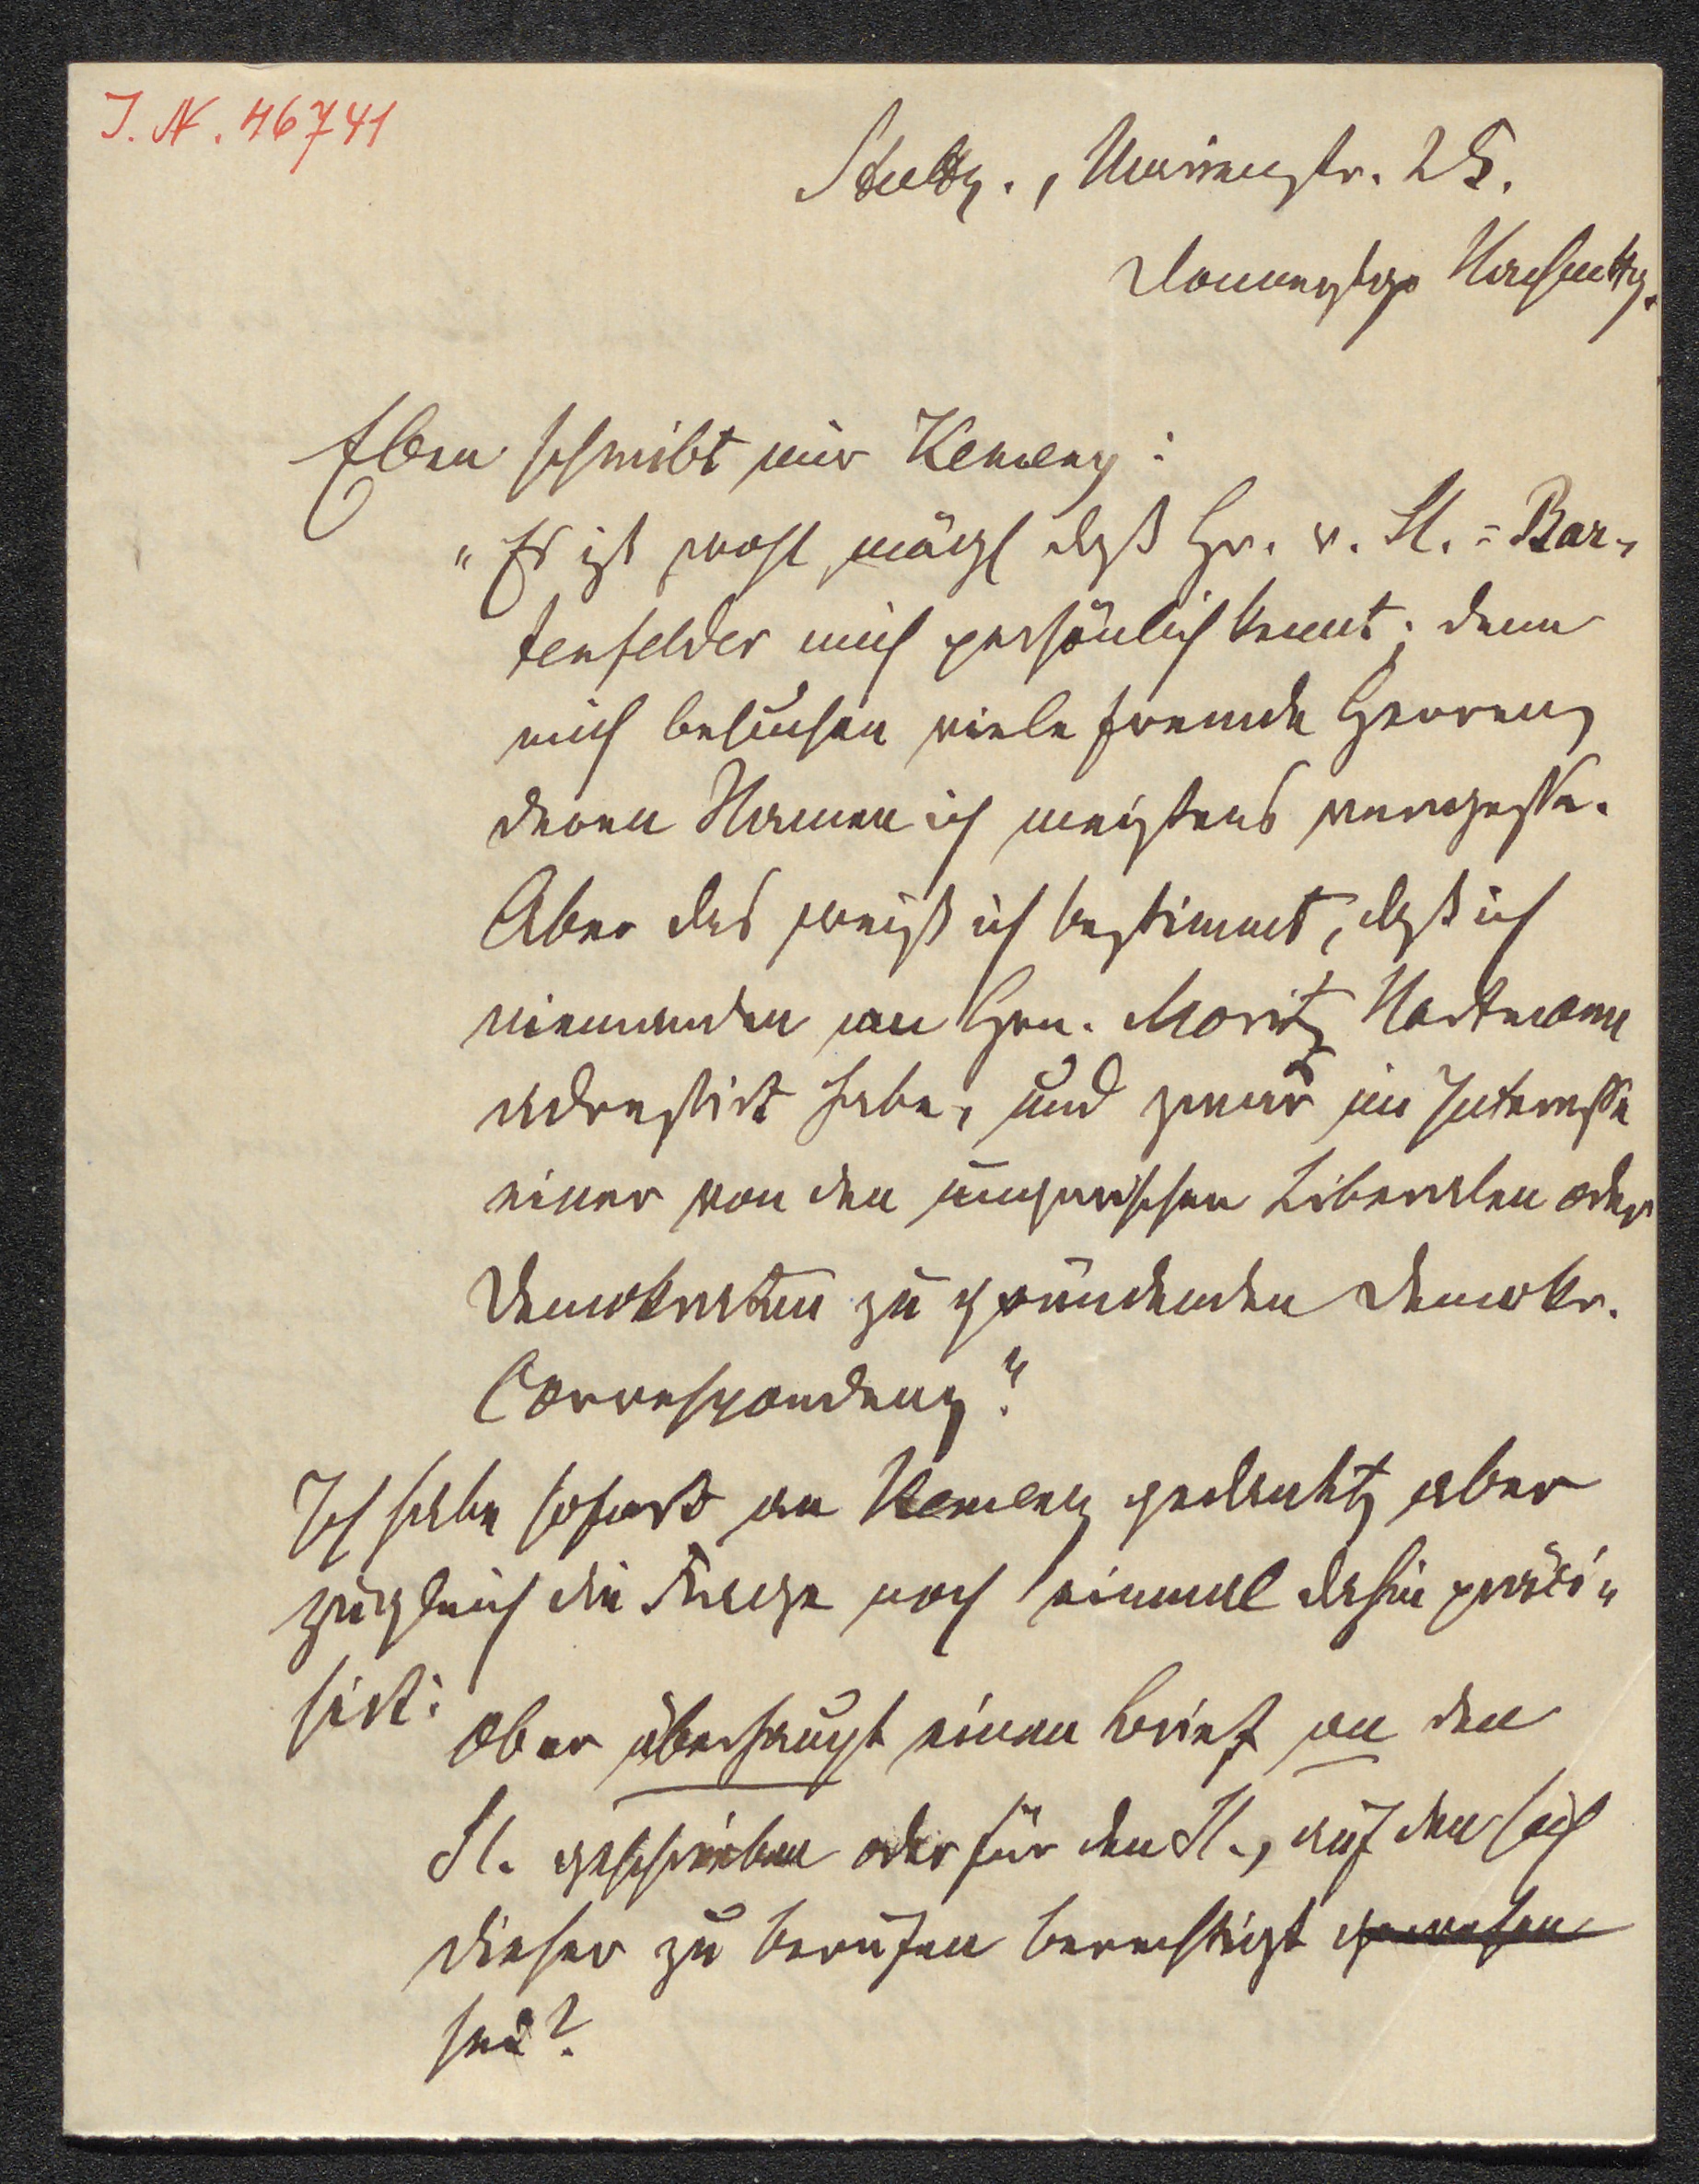 J. N. 46741
Stuttg., Marienstr. 25.
Donnerstags Nachmttg.
Eben schreibt mir Kemeny:
„Es ist wohl mögl daß Hr. v. St.=Bar-
tenfelder mich persönlich kennt; denn
mich besuchen viele fremde Herren,
deren Namen ich meistens vergesse.
Aber das weiß ich bestimmt, daß ich
niemanden an Hrn. Moritz Hartmann
adressirt habe, und zwar im Interesse
einer von den ungarischen Liberalen oder
Demokraten zu gründenden demokr.
Correspondenz“.
Ich habe sofort an Kemeny gedankt, aber
zugleich die Frage noch einmal dahin präci-
sirt:
Ob er überhaupt einen Brief an den
St. geschrieben oder für den St., auf den sich
dieser zu berufen berechtigt gewesen
sei?